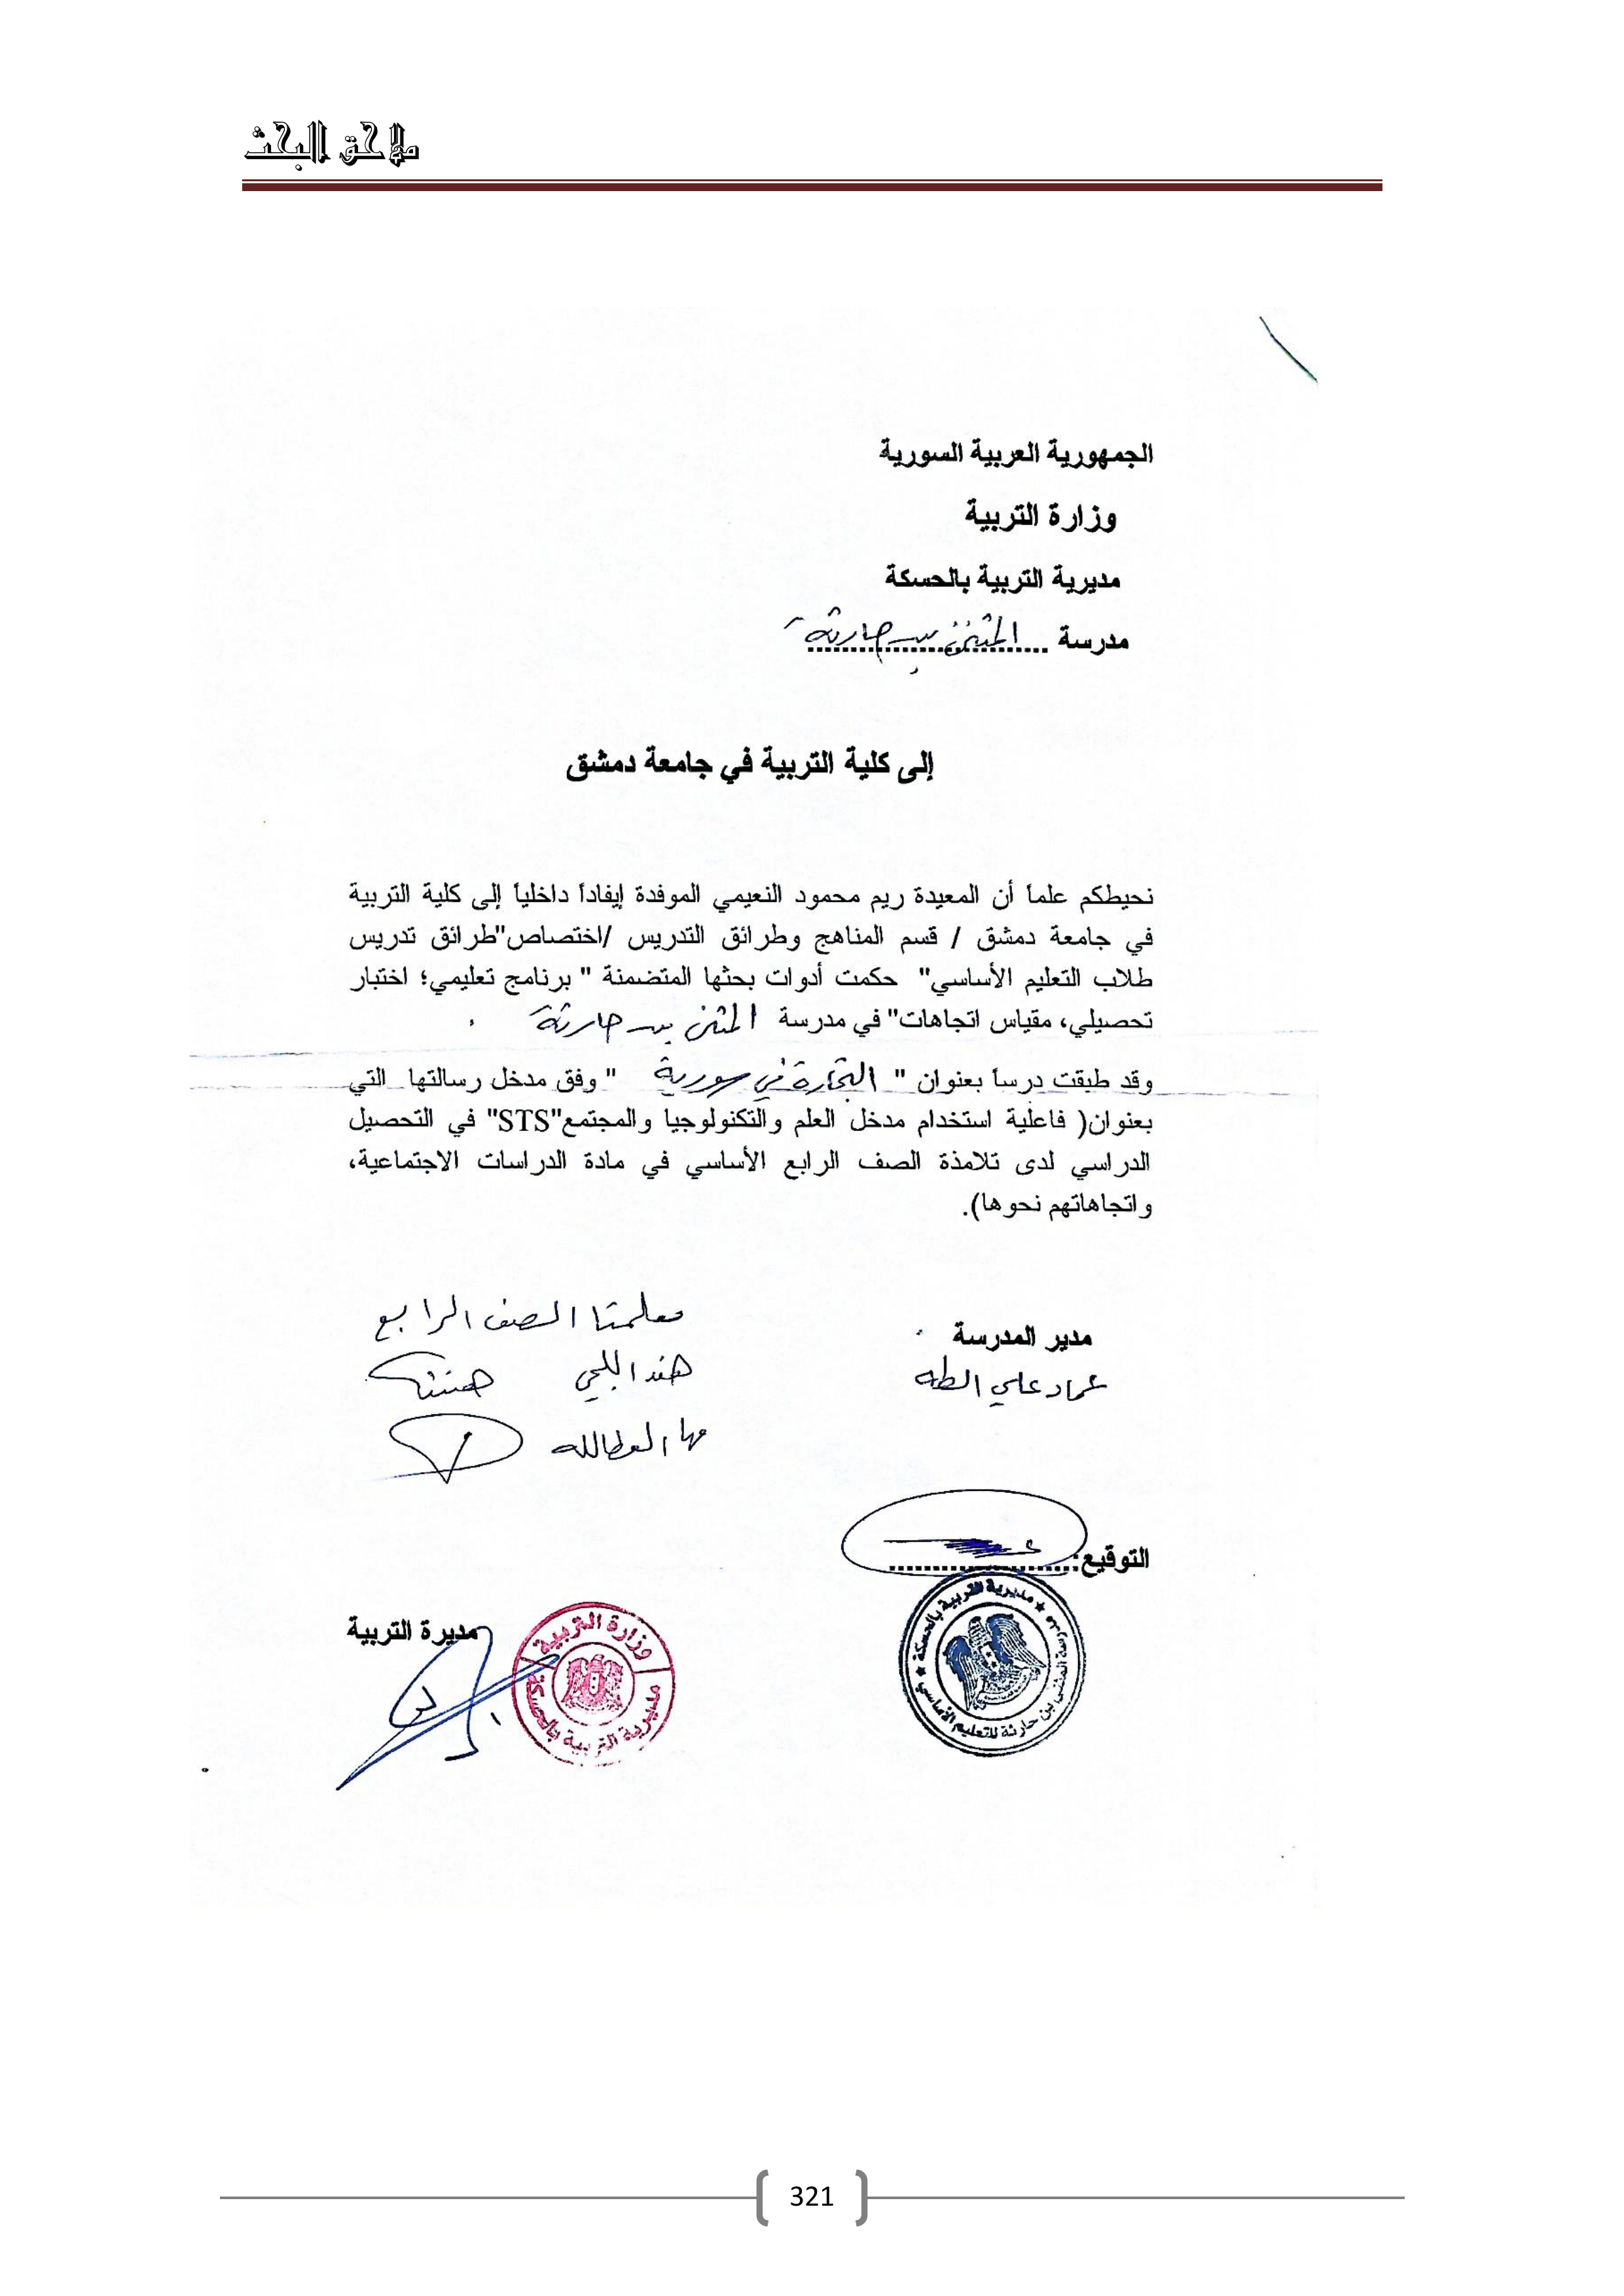 ملاحق البحث
الجمهورية العربية السورية
وزارة التربية
مديرية التربية بالحسكة
مدرسة المثنى بن حارثة
إلى كلية التربية في جامعة دمشق
نحيطكم علماً أن المعيدة ريم محمود النعيمي الموفدة إيفاداً داخلياً إلى كلية التربية
في جامعة دمشق / قسم المناهج وطرائق التدريس /اختصاص"طرائق تدريس
طلاب التعليم الأساسي" حكمت أدوات بحثها المتضمنة " برنامج تعليمي؛ اختبار
تحصيلي، مقياس اتجاهات" في مدرسة المثنى بن حارثة .
وقد طبقت درساً بعنوان " التجارة في سورية " وفق مدخل رسالتها التي
بعنوان( فاعلية استخدام مدخل العلم والتكنولوجيا والمجتمع"STS" في التحصيل
الدراسي لدى تلامذة الصف الرابع الأساسي في مادة الدراسات الاجتماعية،
واتجاهاتهم نحوها).
معلمتا الصف الرابع
مدير المدرسة
هند
عماد علي الطه
مها العطالله
التوقيع:
مديرية التربية بالحسكة
المثنى بن حارثة للتعليم الأساسي
مديرة التربية
وزارة التربية
مديرية التربية بالحسكة
321